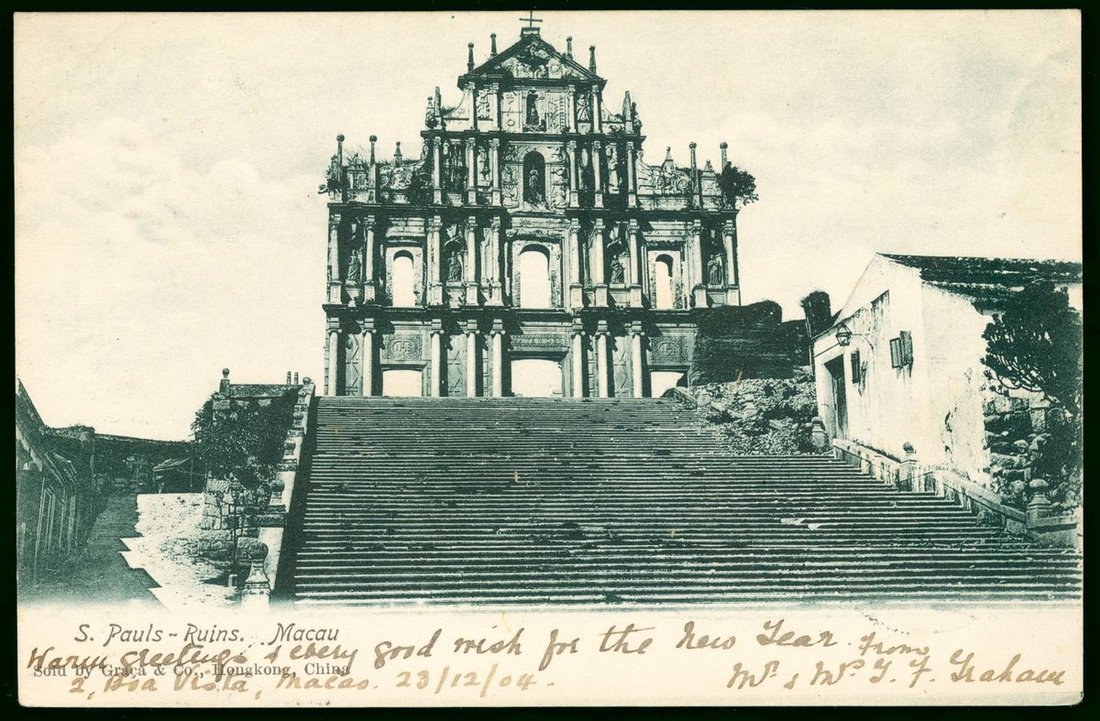 S. Pauls - Ruins. Macau
Warm Greetings & every good wish for the New Year. From
Sold by Graça & Co., Hongkong, China
2, Boa Vista, Macao. 23/12/04.
Mr. & Mrs. G. F. Graham